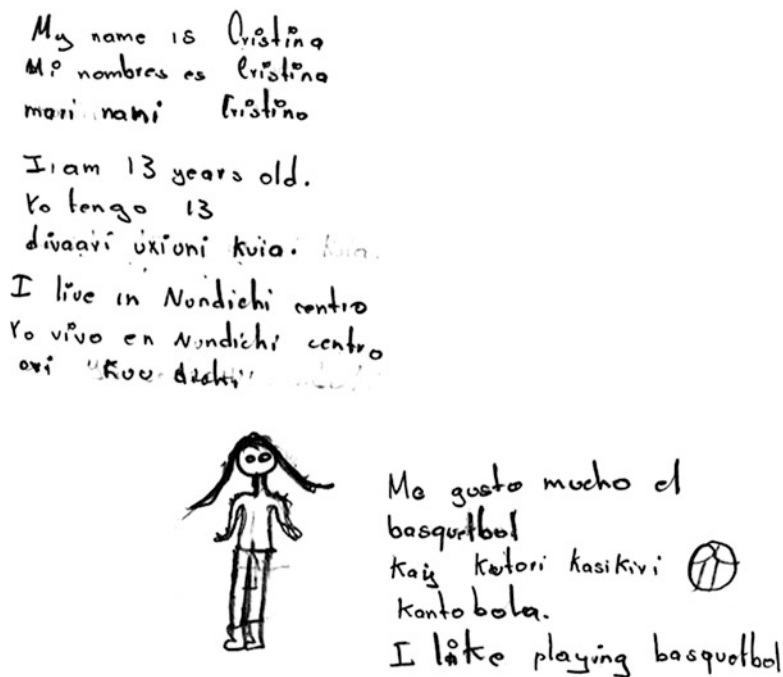 My name is Cristina
Mi nombres es Cristina
mari nani Cristina
I am 13 years old.
Yo tengo 13
divaari uxiuni kuia.
I live in Nundichi centro
Yo vivo en Nundichi centro
ori "Kuu dichi"
Me gusto mucho el
basquetbol
Kaiy kutori kasikivi
Kanto bola.
I like playing basquetbol